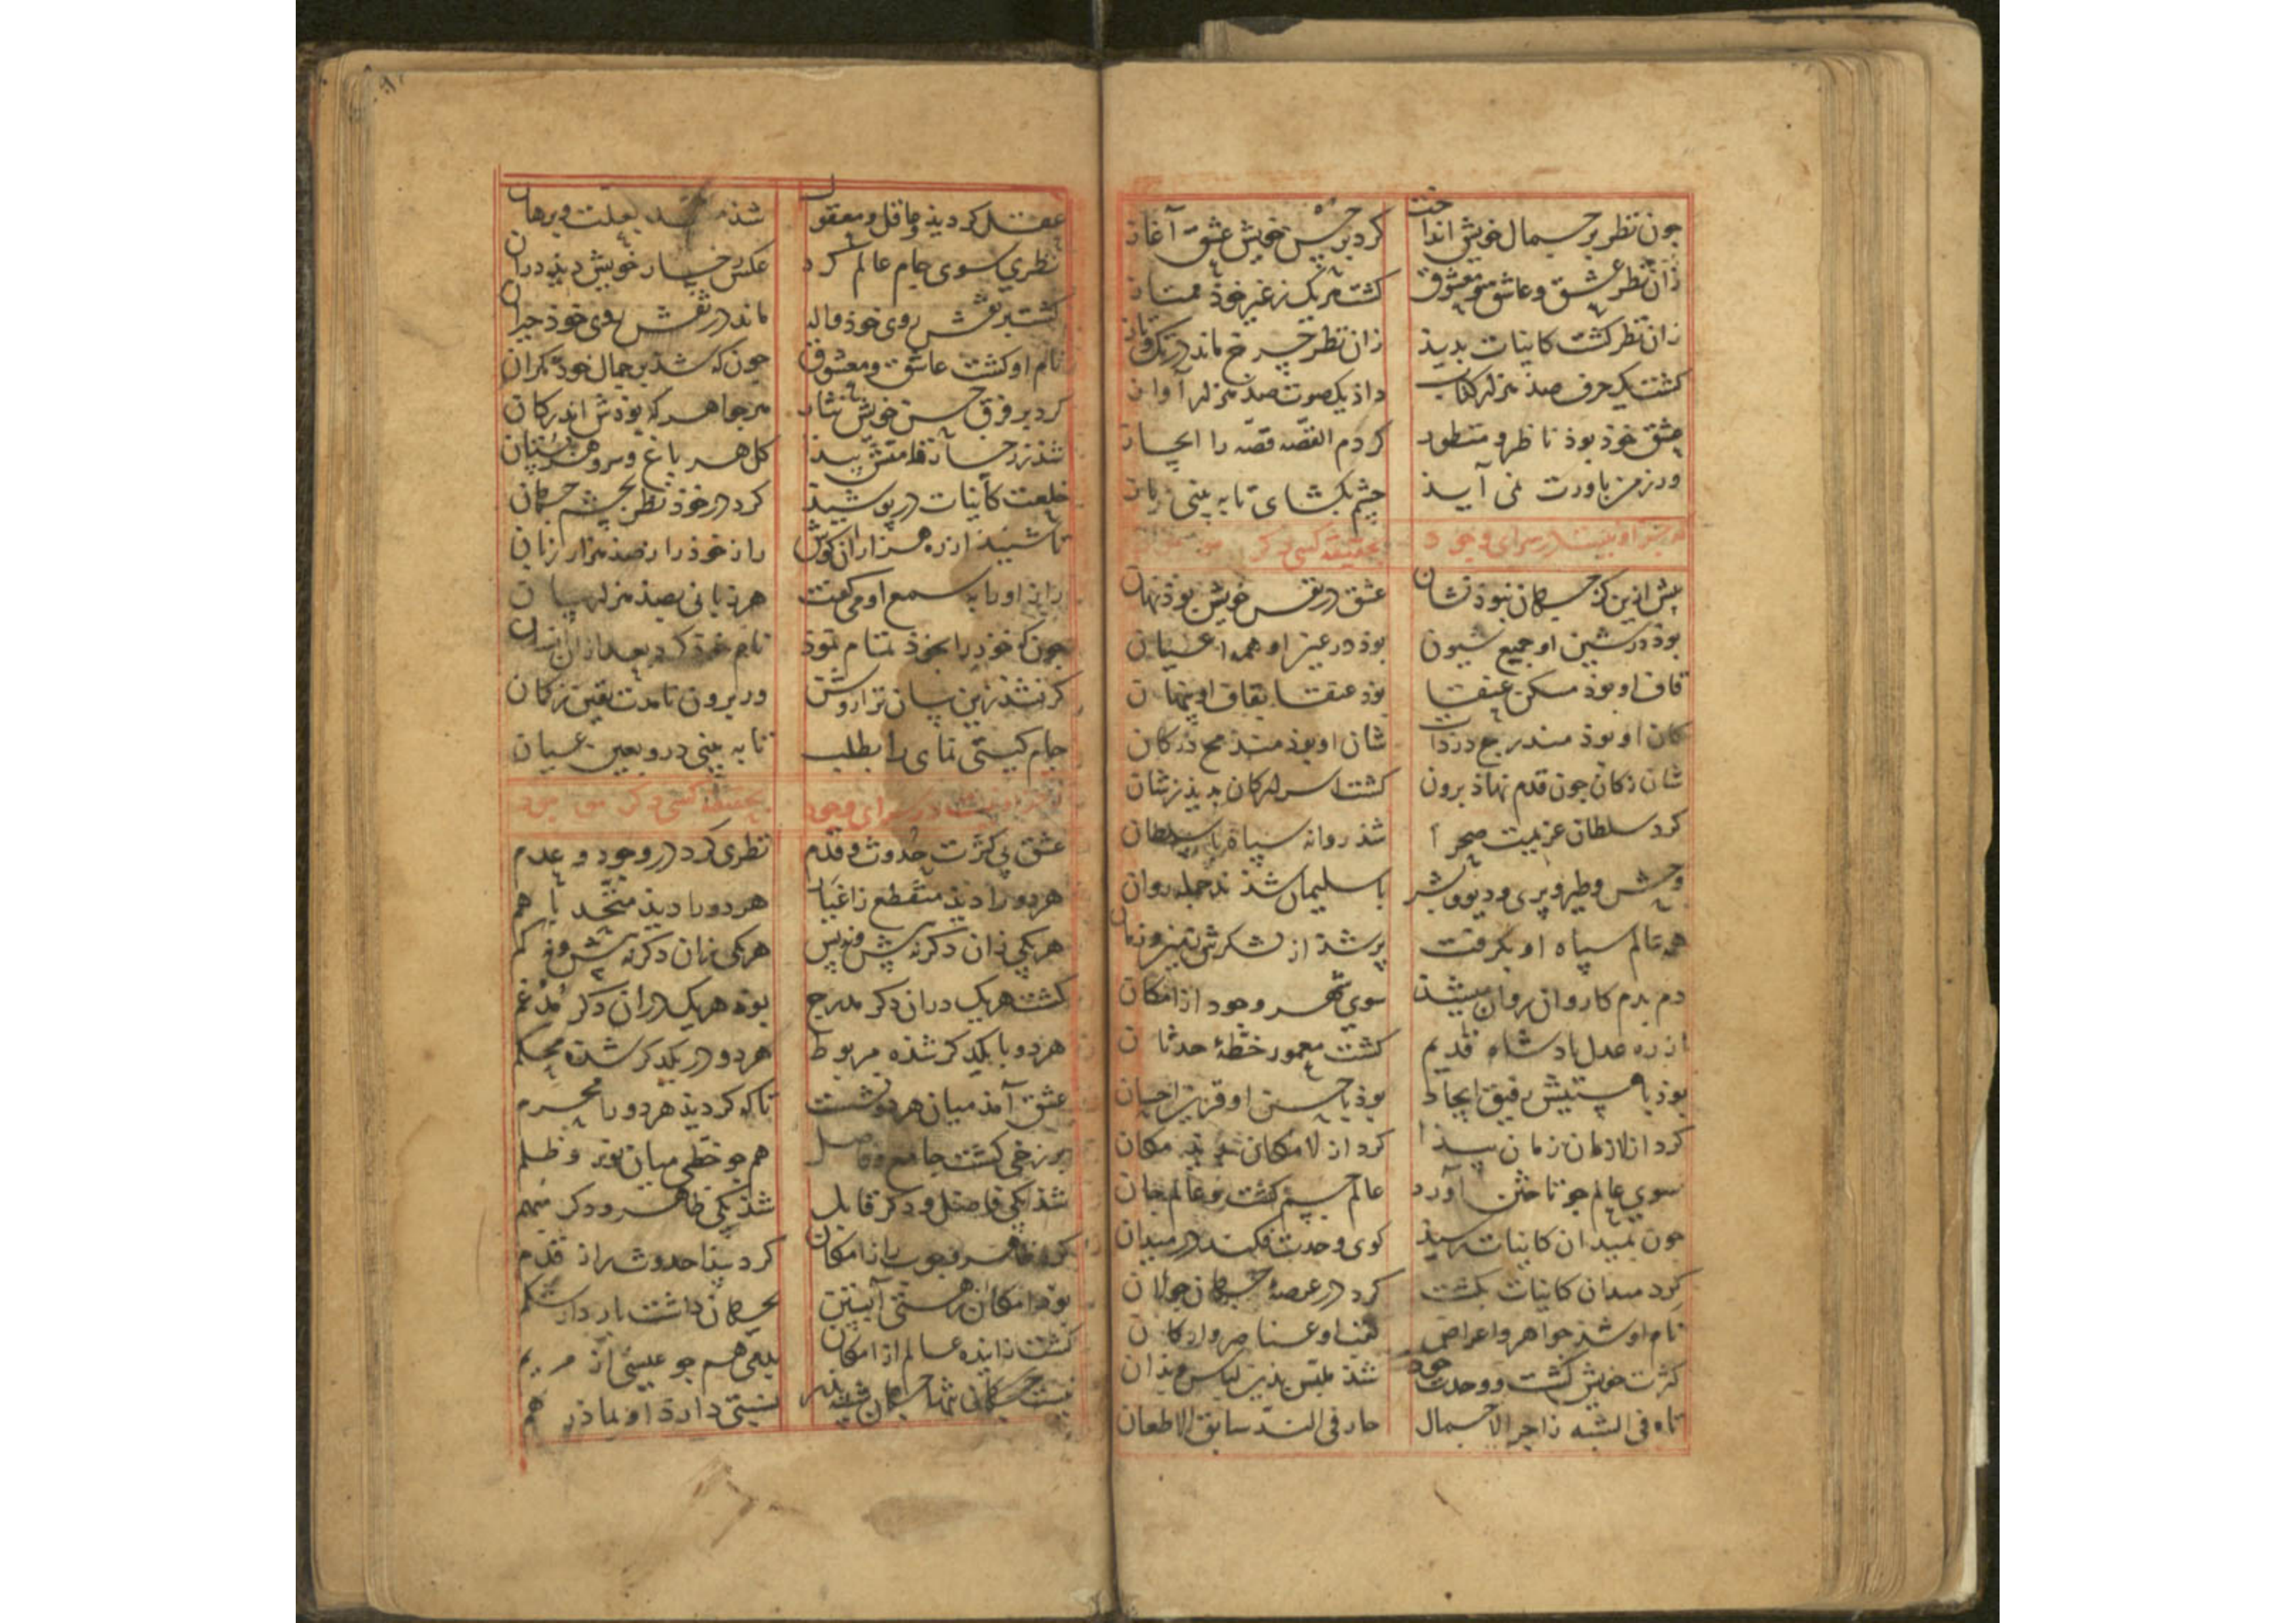 جون نظر بر جمال خویش انداخت کرد بر حسن خویش عشق آغاز
زان نظر عشق و عاشق و معشوق کشت هر یک ز غیر خوذ ممتاز
زان نظر کشت کاینات بدیذ زان نظر جرخ ماند در تک و تاز
کشت یک حرف صذ هزار کتاب داذ یک صوت صذ هزار آواز
عشق خوذ بوذ ناظر و منظور کردم القصّه قصّه را ایجاز
ور ز من باورت نمی آیذ جشم بکشای تا به بینی باز
که جز او نیست در سرای وجوذ بحقیقت کسی دکر موجوذ
پیش ازین کز جهان نبوذ نشان عشق در نفس خویش بوذ نهان
بوذ در شین او جمیع شیون بوذ در عین او همه اعیان
قاف او بوذ مسکن عنقا بوذ عنقا بقاف او پنهان
کان او بوذ مندرج در ذات شان او بوذ مندمج در کان
شان ز کان جون قدم نهاذ برون کشت اسرار کان بدیذ ز شان
کرد سلطان عزیمت صحرا شذ روانه سپاه با سلطان
وحش و طیر و پری و دیو و بشر با سلیمان شذند جمله روان
همه عالم سپاه او بکرفت پر شذ از لشکرش زمین و زمان
دم بدم کاروان روان میشذ سوی شهر وجود از امکان
از ره عدل باذشاه قدیم کشت معمور خطّهٔ حدثان
بوذ با هستیش رفیق ایجاذ بوذ با حسن او قرین احسان
کرد از لازمان زمان پیذا کرد از لامکان بدیذ مکان
سوی عالم جو تاختن آورد عالم جسم کشت و عالم جان
جون بمیدان کاینات رسیذ کوی وحدت فکند در میدان
کرد میدان کاینات بکشت کرد در عرصهٔ جهان جولان
نام او شذ جواهر و اعراض لقب او عناصر و ارکان
کثرت خویش کشت و وحدت خوذ شذ ملبّس بذین لباس و بذان
تاه فی الشبه زاجر الاجمال حار فی البند سابق الاظعان
عقل کردیذ و عاقل و معقول
نظری سوی جام عالم کرد عکس رخسار خویش دیذ در آن
کشت بر نقش روی خوذ واله ماند در نقش روی خوذ حیران
نام او کشت عاشق و معشوق جون که شذ بر جمال خوذ نکران
کرد بر فرق حسن خویش نثار هر جواهر که بوذش اندر کان
شذ ز رخسار و قامتش پیذا کل هر باغ و سرو هر بستان
خلعت کاینات در پوشیذ کرد در خوذ نظر بجشم جهان
تا شنیذ از ره هزاران کوش راز خوذ را ز صذ هزار زبان
راز او را به سمع او می کفت هر زبانی بصذ هزار بیان
جون که خوذ را بخوذ تمام نموذ نام خوذ کرد بعد از آن انسان
کر نشذ زین بیان ترا روشن ور برون نامدت یقین ز کمان
جام کیتی نمای را بطلب تا به بینی درو بعین عیان
که جز او نیست در سرای وجوذ بحقیقت کسی دکر موجوذ
عشق بی کثرت حدوث و قدم نظری کرد در وجوذ و عدم
هر دو را دیذ منقطع ز اغیار هر دو را دیذ متّحد با هم
هر یکی زان دکر نه پیش و نه پس هر یکی زان دکر نه بیش و نه کم
کشت هر یک در آن دکر مدرج بوذ هر یک در آن دکر مدغم
هر دو با یکدکر شذه مربوط هر دو در یکدکر شذه محکم
عشق آمذ میان هر دو نشست تا که کردیذ هر دو را محرم
برزخی کشت جامع و فاصل هم جو خطّی میان نور و ظلم
شذ یکی فاعل و دکر قابل شذ یکی ظاهر و دکر مبهم
کرد ظاهر وجوب را ز امکان کرد پیذا حدوث را ز قدم
بوذ امکان ز هستی آبستن بجهان داشت بار دار شکم
کشت زاینده عالم از امکان یعنی هم جو عیسی از مریم
نسبتی دارد او بماذر هم